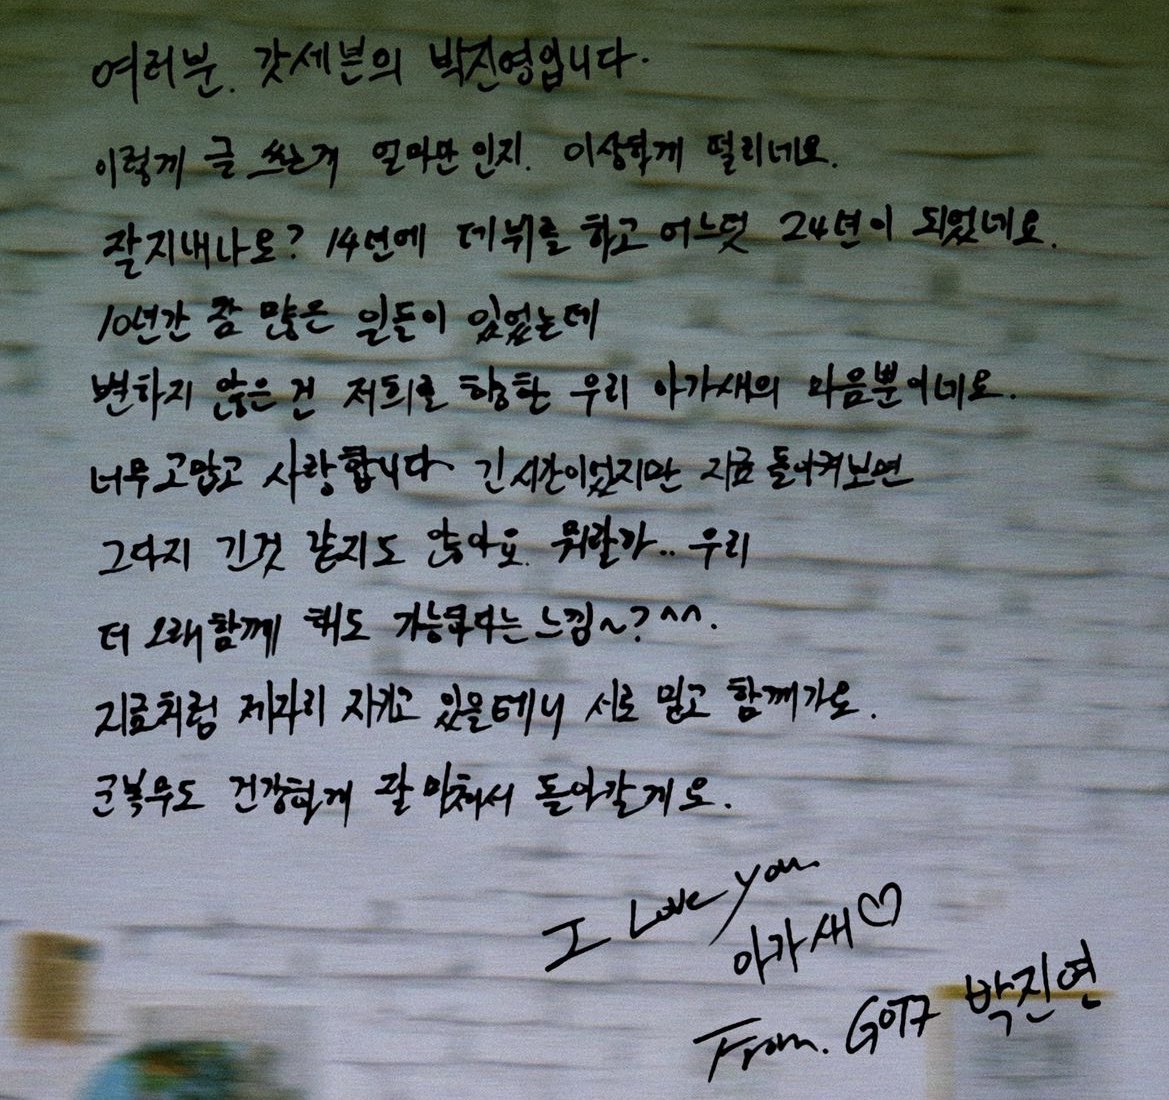 여러분. 갓세븐의 박진영입니다.
이렇게 글 쓰는게 얼마만 인지. 이상하게 떨리네요.
잘지내나요? 14년에 데뷔를 하고 어느덧 24년이 되었네요.
10년간 참 많은 일들이 있었는데
변하지 않은 건 저희로 향한 우리 아가새의 마음뿐이네요.
너무 고맙고 사랑합니다 긴 시간이었지만 지금 돌이켜보면
그다지 긴것 같지도 않아요. 뭐랄까.. 우리
더 오래 함께 해도 가능하다는 느낌~? ^^.
지금처럼 제자리 지키고 있을테니 서로 믿고 함께가요.
군복무도 건강하게 잘 마쳐서 돌아갈게요.
I Love you
아가새♡
From. GOT7 박진영